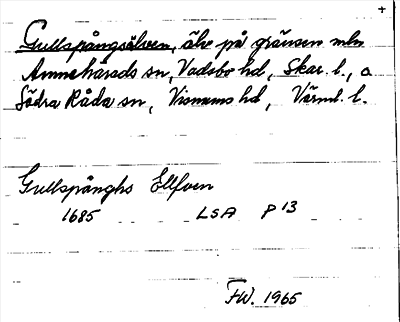 +
Gullspångsälven, älv på gränsen mln
Amnehärads sn, Vadsbo hd, Skar. l., o
Södra Råda sn, Visnums hd, Värml. l.
Gullspånghs Ellfven
1685 LSA p 13
FW. 1965